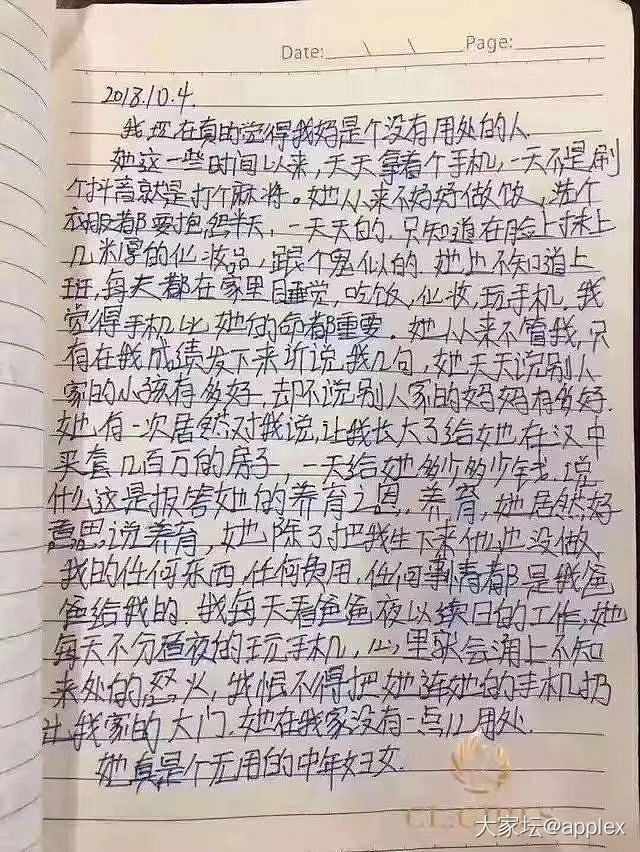 Date: \ \ Page:
2018.10.4.
我现在真的觉得我妈是个没有用处的人
她这一些时间以来，天天拿着个手机，一天不是刷
个抖音就是打个麻将。她从来不好好做饭，洗个
衣服都要抱怨半天，一天天的.只知道在脸上抹上
几米厚的化妆品，跟个鬼似的.她也不知道上
班，每天都在家里睡觉，吃饭，化妆，玩手机.我
觉得手机比她的命都重要.她从来不管我，只
有在我成绩发下来训说我几句，她天天说别人
家的小孩有多好，却不说别人家的妈妈有多好.
她，有一次居然对我说，让我长大了给她在汉中
买套几百万的房子，一天给她多少多少钱.说
什么这是报答她的养育之恩，养育，她居然好
意思说养育，她除了把我生下来他也没做
我的任何东西，任何费用，任何事情都是我爸
爸给我的.我每天看爸爸夜以续日的工作，她
每天不分昼夜的玩手机，心里就会涌上不知
来处的怒火，我恨不得把她连她的手机扔
出我家的大门.她在我家没有一点儿用处.
她真是个无用的中年妇女.
大家坛@applex